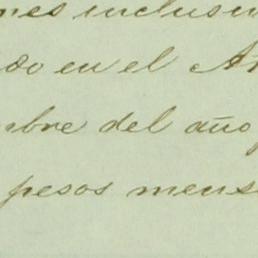 nes inclusiv
do en el A
mbre del año
pesos mens